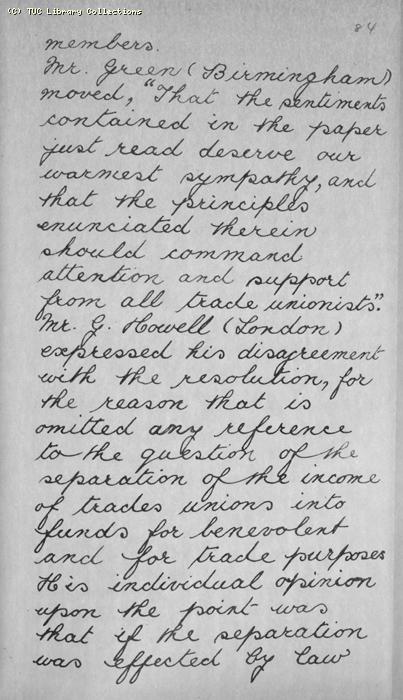 (C) TUC Library Collections
84
members.
Mr. Green (Birmingham)
moved, "That the sentiments
contained in the paper
just read deserve our
warmest sympathy, and
that the principles
enunciated therein
should command
attention and support
from all trade unionists".
Mr. G. Howell (London)
expressed his disagreement
with the resolution, for
the reason that is
omitted any reference
to the question of the
separation of the income
of trades unions into
funds for benevolent
and for trade purposes
His individual opinion
upon the point was
that if the separation
was effected by law